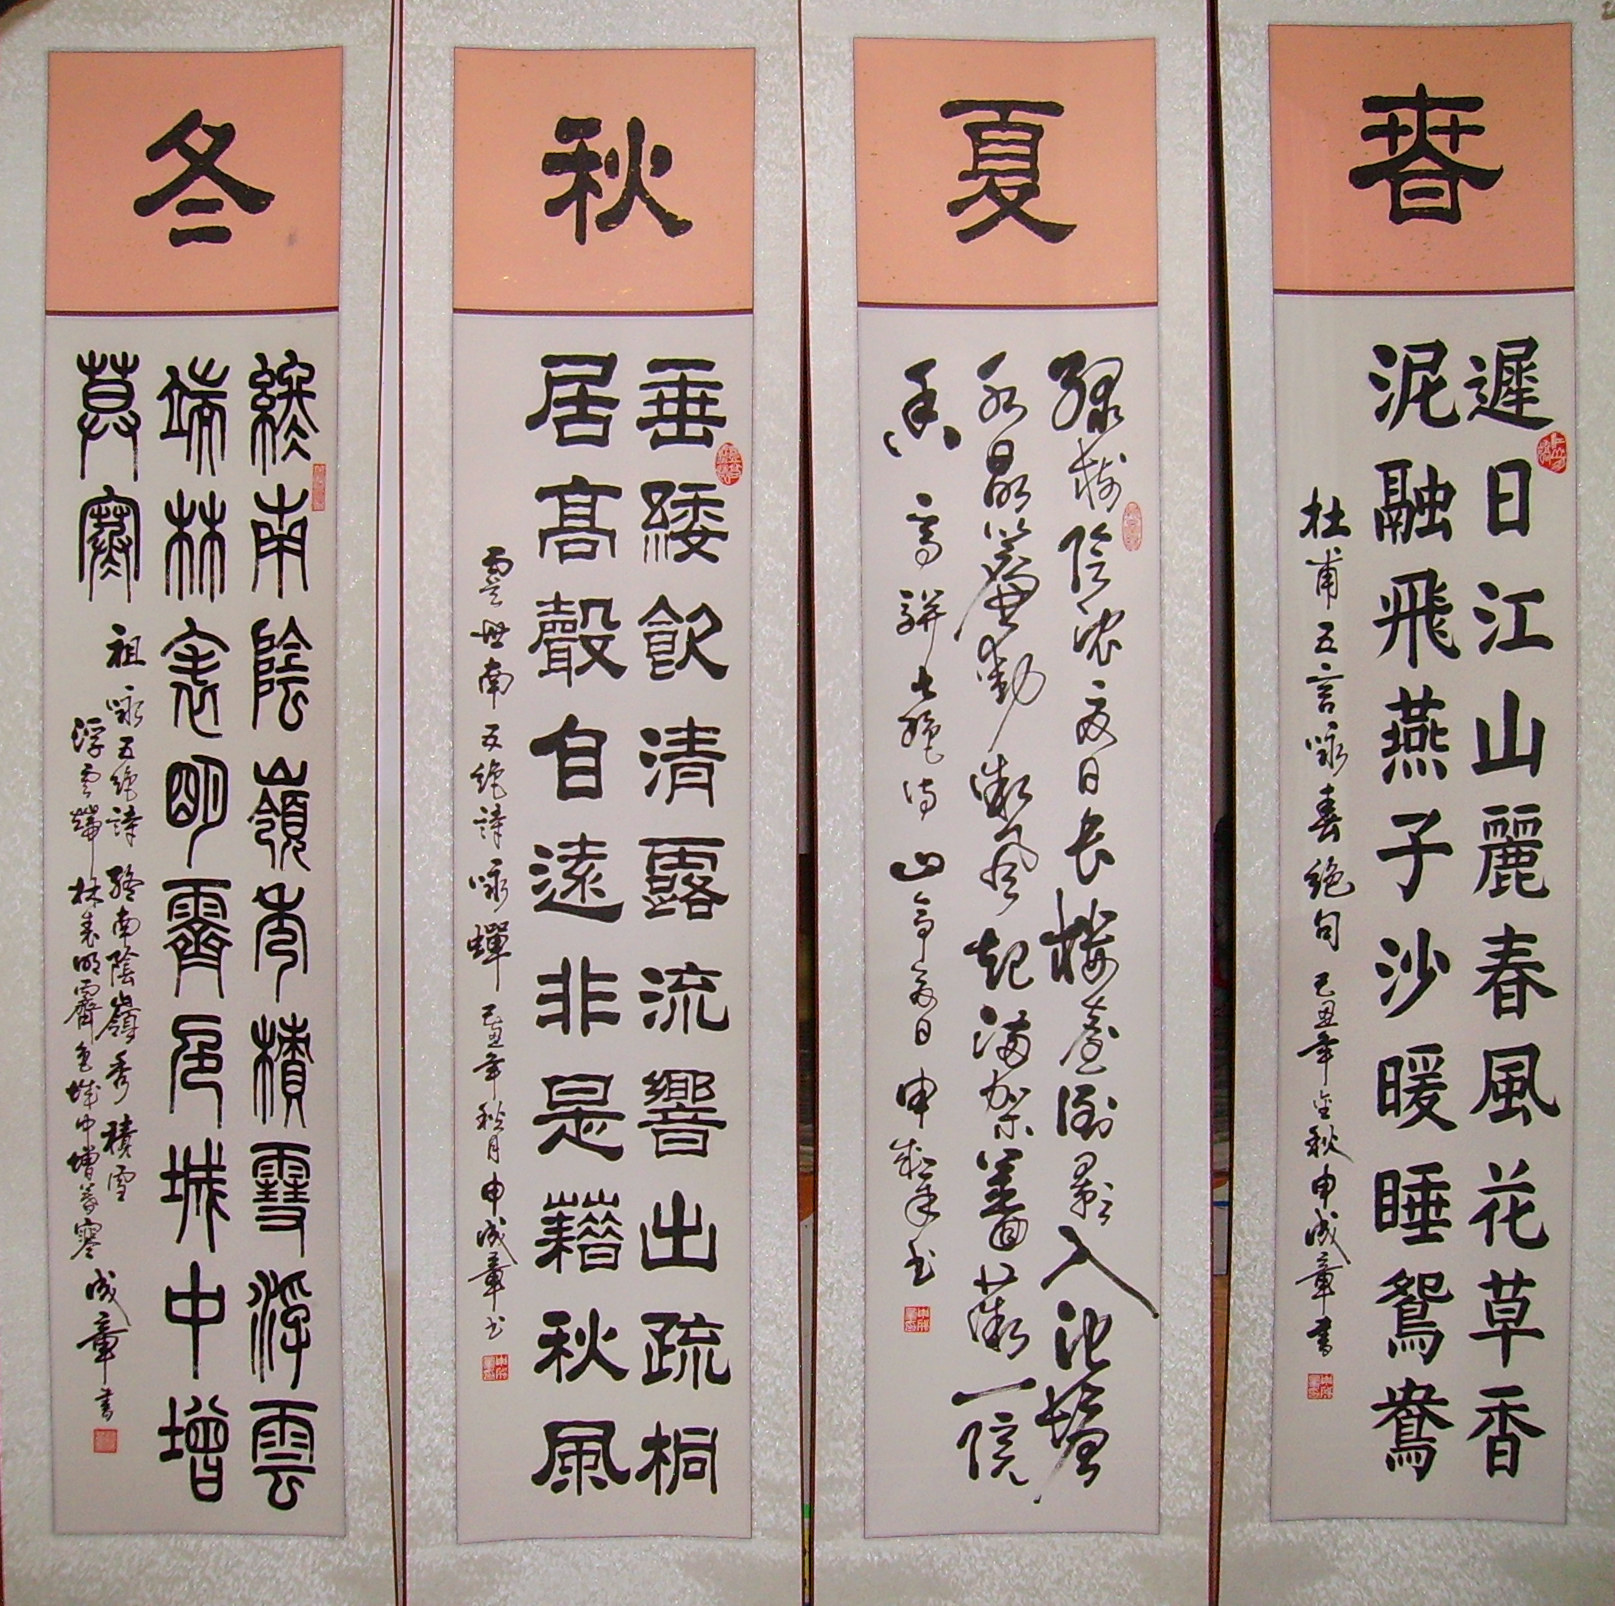 春
遲日江山麗春風花草香
泥融飛燕子沙暖睡鴛鴦
杜甫五言咏春絶句 己丑年金秋申成章書
夏
綠樹陰濃夏日長樓臺倒影入池塘
水晶簾動微風起滿架薔薇一院
香 高駢七絶詩 山亭夏日 申成章书
秋
垂緌飲清露流響出疏桐
居高聲自遠非是藉秋風
虞世南五絶詩咏蟬 己丑年秋月申成章书
冬
終南陰嶺秀積雪浮雲
端林表明霽色城中增
莫寒
祖咏五絶詩 終南陰嶺秀積雪
浮雲端林表明霽色城中增暮寒 成章書